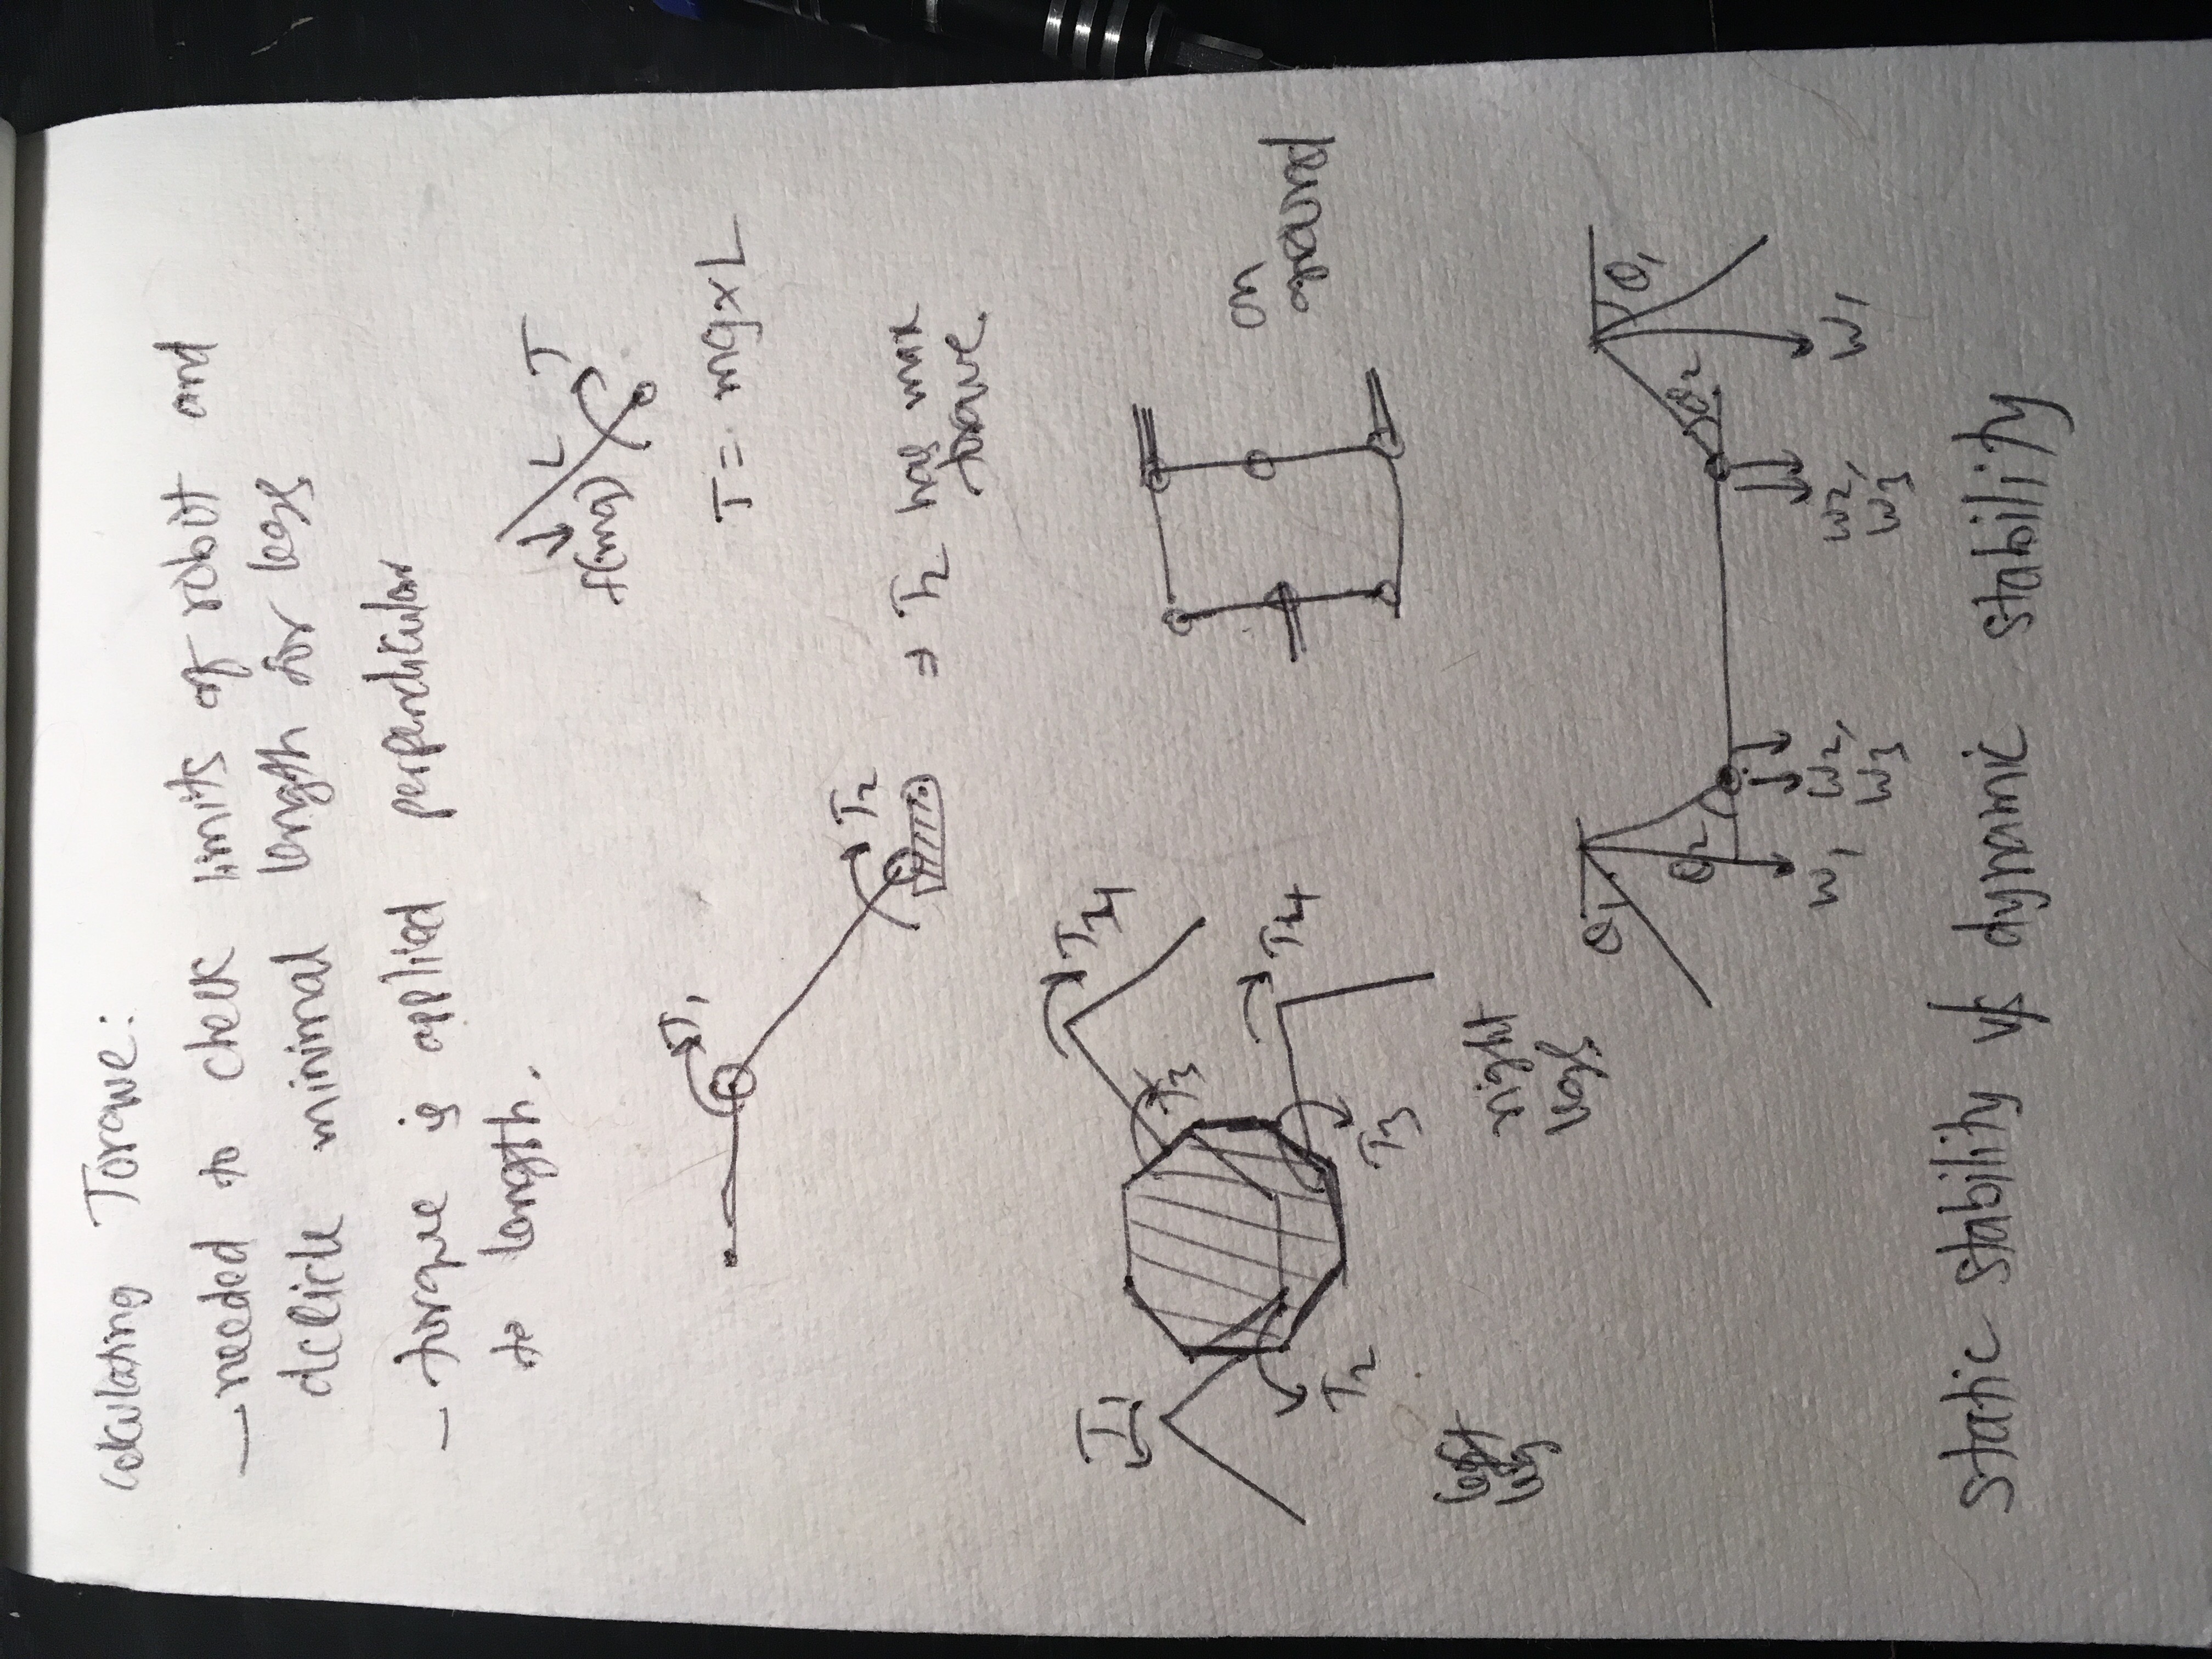 Calculating Torque:
- needed to check limits of robot and
decide minimal length for legs
- torque is applied perpendicular
to length.
L T
f(mg)
T1
T = mg x L
T2
⇒ T2 has max
torque.
T1
T4
T3
T2
T4
T3
on
ground
left
leg
right
legs
θ1
θ1
θ2
θ2
W1 W2,
W3
W2,
W3
W1
static stability v/s dynamic stability